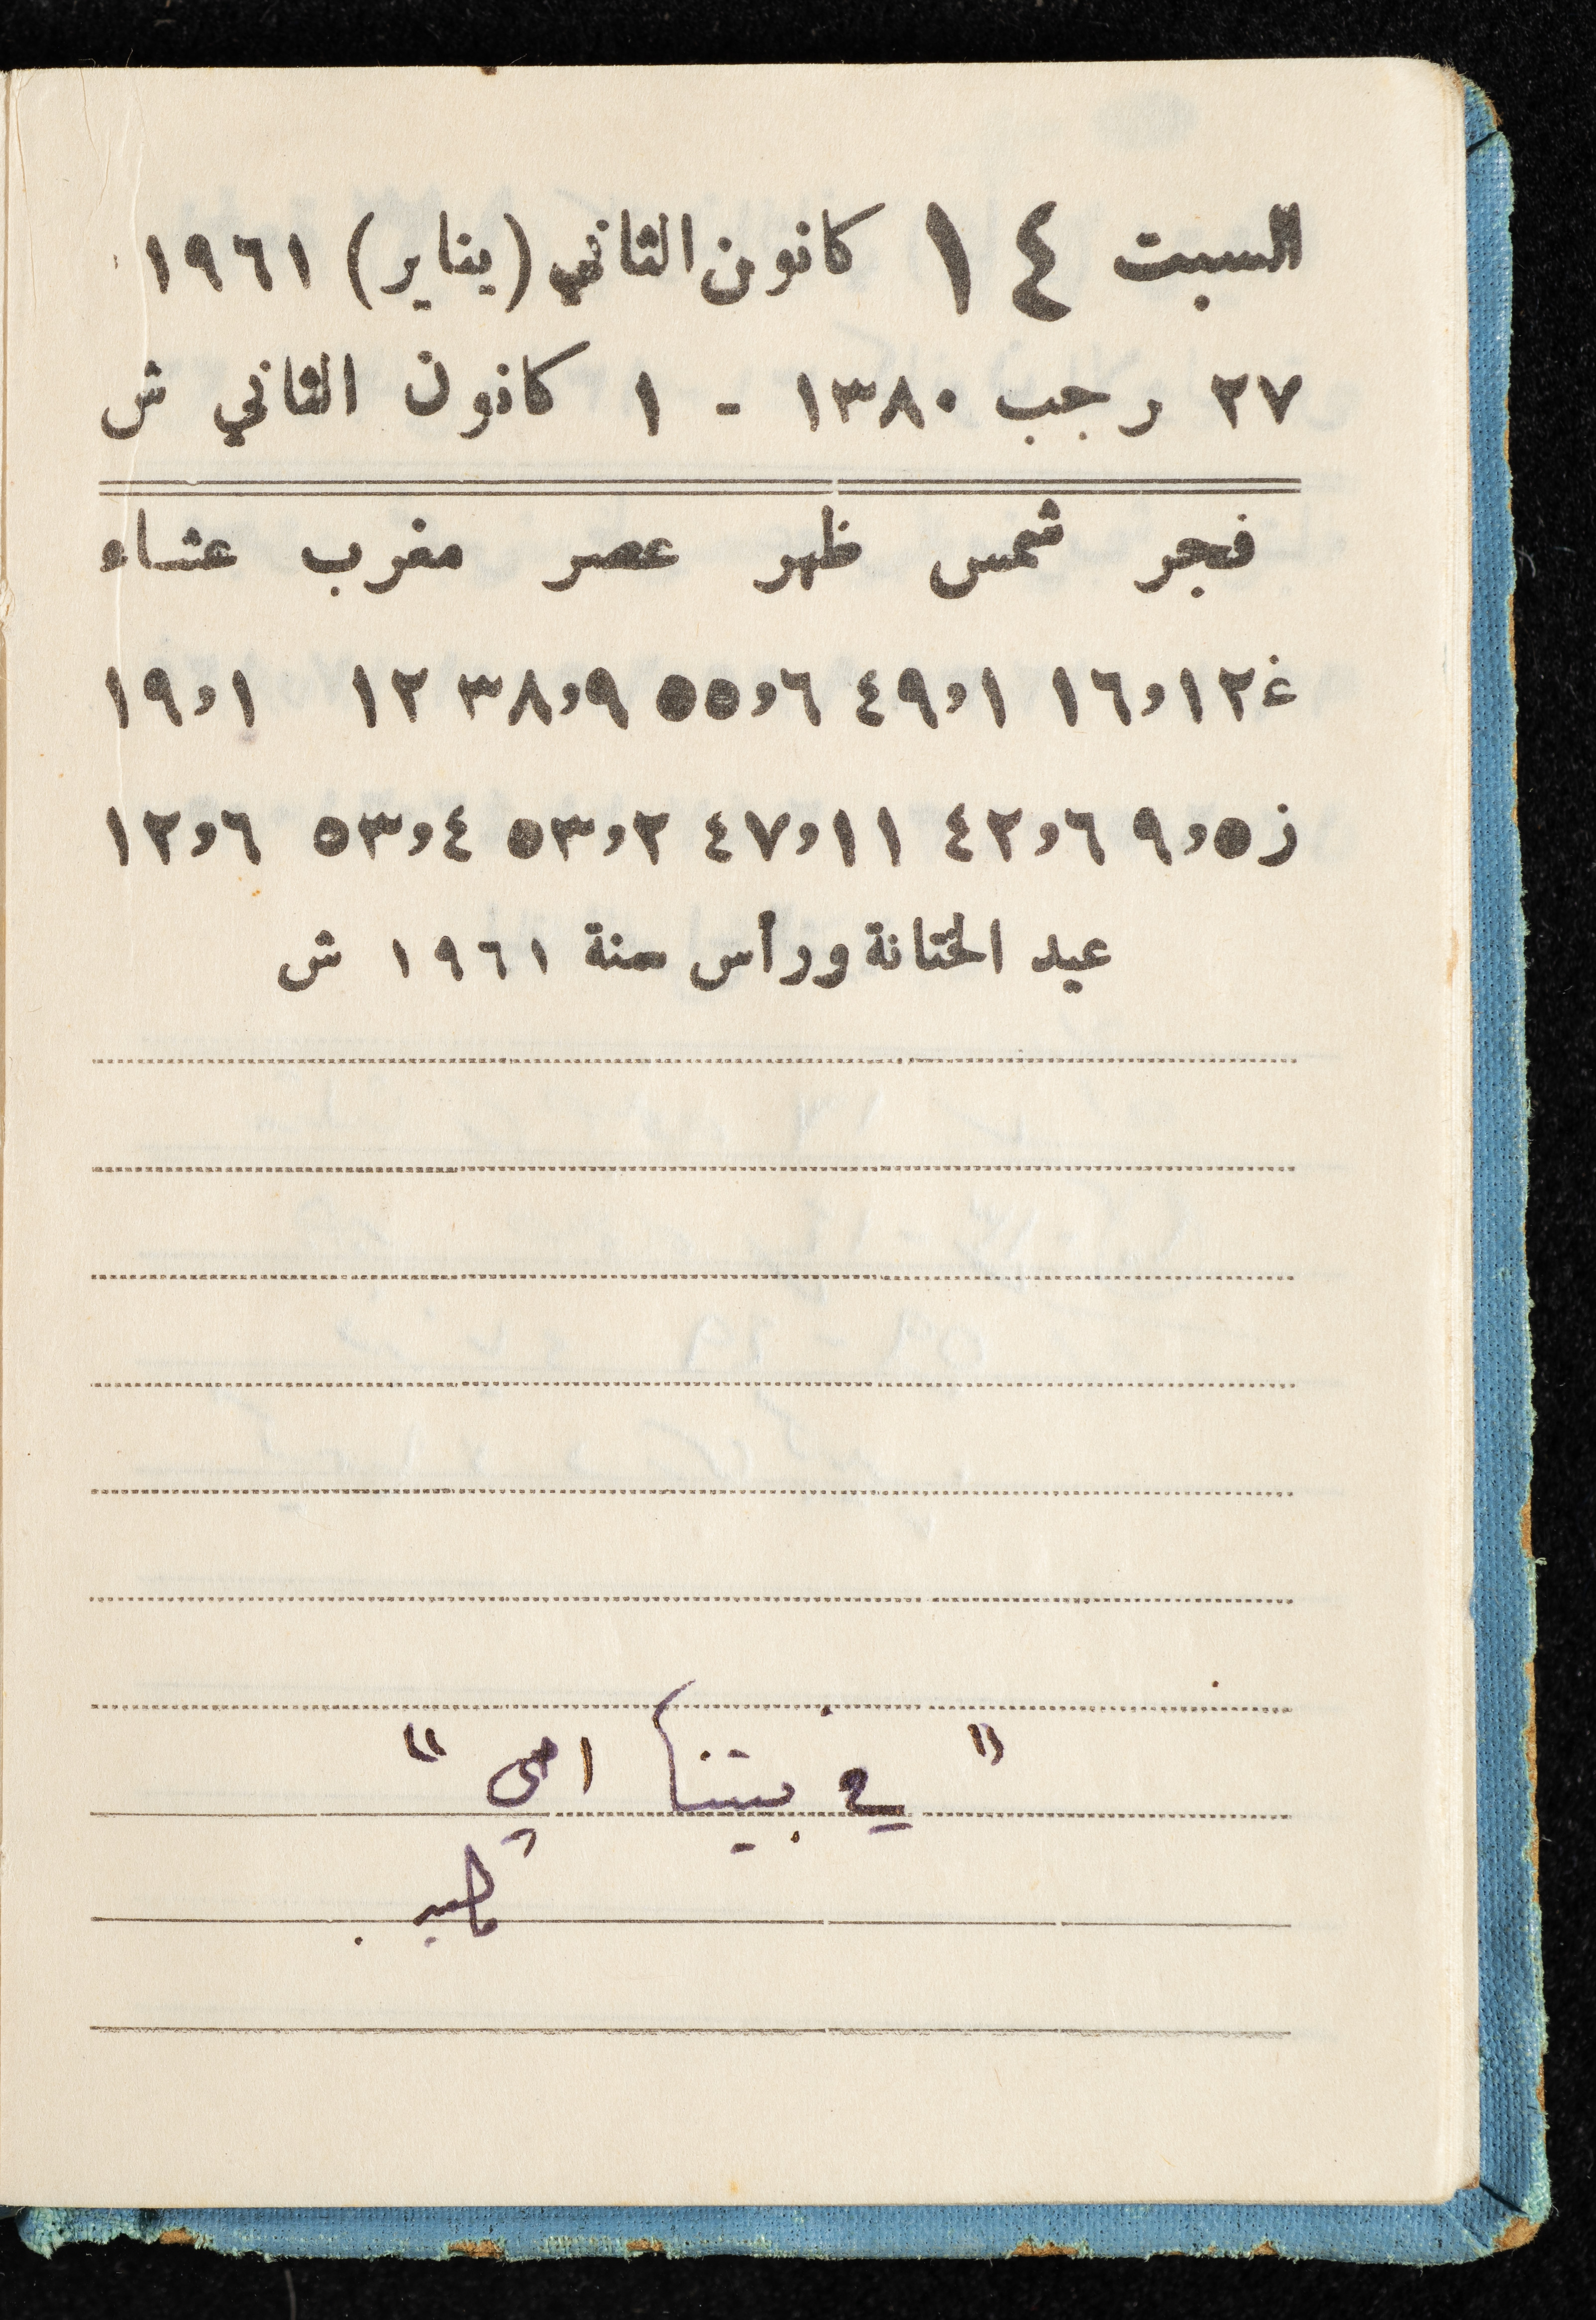 السبت ١٤ كانون الثاني (يناير) ١٩٦١
٢٧ رجب ١٣٨٠ - ١ كانون الثاني ش
فجر شمس ظهر عصر مغرب عشاء
غ ١٢،١٦ ١،٤٩ ٦،٥٥ ٩،٣٨ ١٢ ١،١٩
ز ٥،٩ ٦،٤٢ ١١،٤٧ ٢،٥٣ ٤،٥٣ ٦،١٢
عيد الختانة ورأس سنة ١٩٦١ ش
" في بيتنا امي "